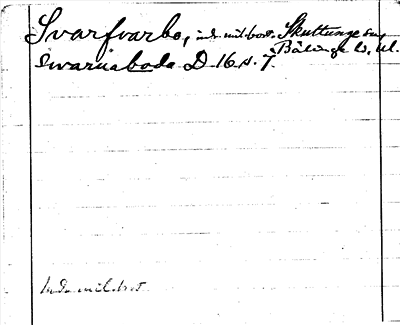 Svarfvarbo, ind. mil. bost. Skuttunge sn,
Bälinge hd. Ul.
Swaruaboda D. 16 s. 7.
Ind. mil. bost